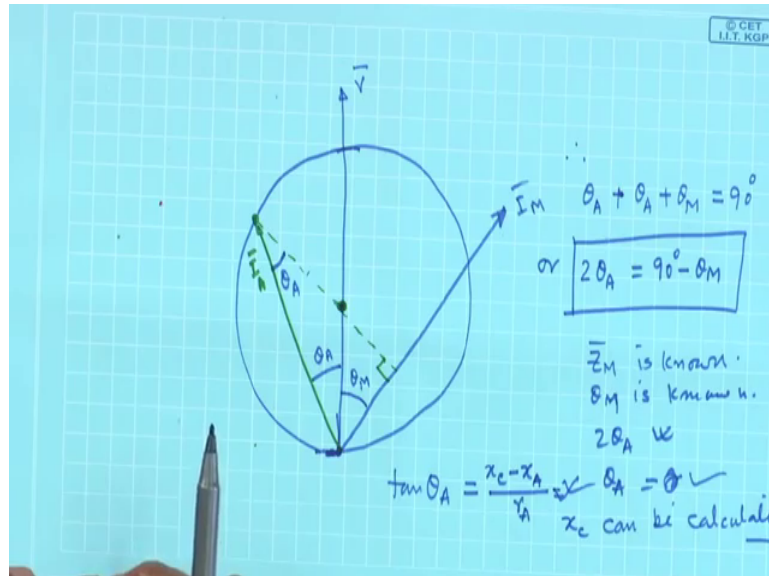 © CET
I.I.T. KGP
V̅
I̅_M
I̅_A
θ_A
θ_A
θ_M
∴
θ_A + θ_A + θ_M = 90°
or 2θ_A = 90° - θ_M
Z̅_M is known.
θ_M is known.
2θ_A
tan θ_A = (x_c - x_A)/r_A = ✓ θ_A = ✓
x_c can be calculat